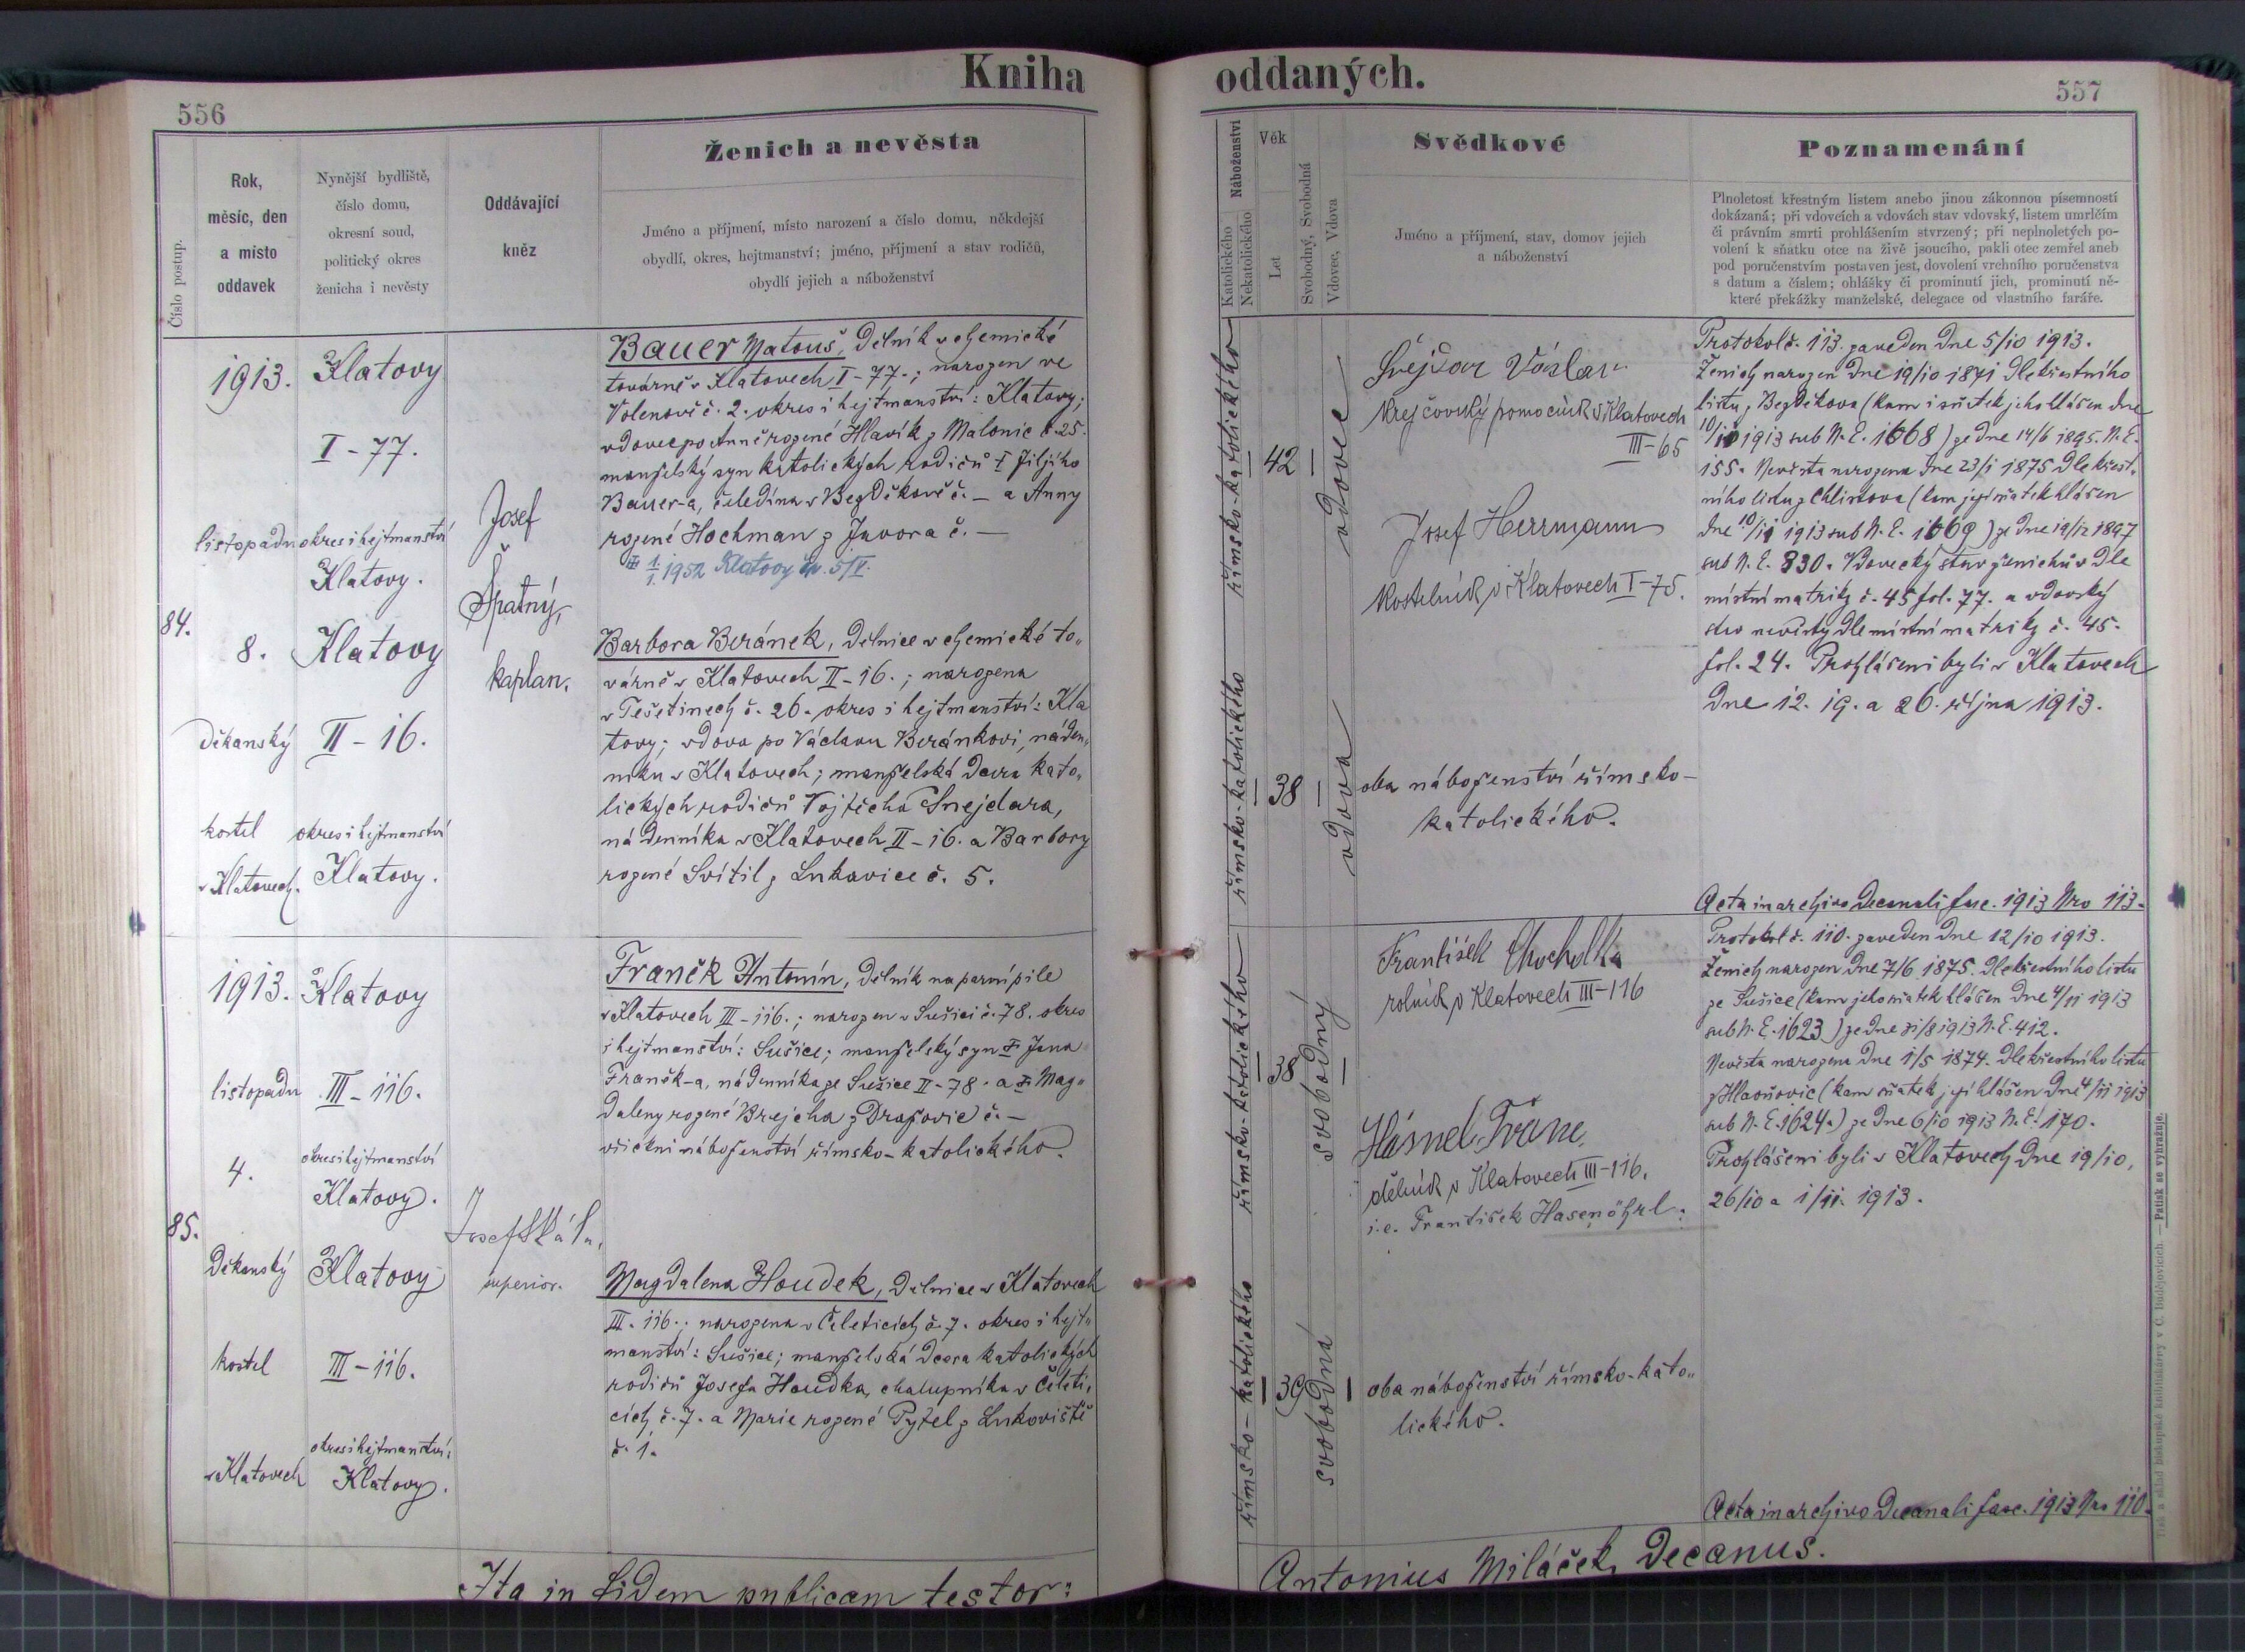 Kniha
oddaných.
556
557
Číslo postup.
Rok,
měsíc, den
a místo
oddavek
Nynější bydliště,
číslo domu,
okresní soud,
politický okres
ženicha i nevěsty
Oddávající
kněz
Ženich a nevěsta
Jméno a příjmení, místo narození a číslo domu, někdejší
obydlí, okres, hejtmanství; jméno, příjmení a stav rodičů,
obydlí jejich a náboženství
Náboženství
Katolického
Nekatolického
Věk
Let
Svobodný, Svobodná
Vdovec, Vdova
Svědkové
Jméno a příjmení, stav, domov jejich
a náboženství
Poznamenání
Plnoletost křestným listem anebo jinou zákonnou písemností
dokázaná; při vdovcích a vdovách stav vdovský, listem umrlčím
či právním smrti prohlášením stvrzený; při neplnoletých po-
volení k sňatku otce na živě jsoucího, pakli otec zemřel aneb
pod poručenstvím postaven jest, dovolení vrchního poručenstva
s datum a číslem; ohlášky či prominutí jich, prominutí ně-
které překážky manželské, delegace od vlastního faráře.
84.
1913.
listopadu
8.
děkanský
kostel
v Klatovech.
Klatovy
I-77.
okres i hejtmanství
Klatovy.
Klatovy
II-16.
okres i hejtmanství
Klatovy.
Josef
Špatný,
kaplan.
Bauer Matouš, dělník v chemické
továrně v Klatovech I-77.; narozen ve
Volenově č. 2. okres i hejtmanství: Klatovy;
vdovec po Anně rozené Hlavík z Malonic č. 25.
manželský syn katolických rodičů † Jiljího
Bauer-a, čeledína v Bezděkově č. — a Anny
rozené Hochman z Javora č. —
1952 Klatovy
Barbora Beránek, dělnice v chemické to„
várně v Klatovech II-16.; narozena
v Těšetinech č. 26. okres i hejtmanství: Kla
tovy; vdova po Václavu Beránkovi, náden„
níku v Klatovech; manželská dcera kato„
lických rodičů Vojtěcha Snejdara,
nádenníka v Klatovech II-16. a Barbory
rozené Svítil z Lukavice č. 5.
římsko-katolického
42
vdovec
římsko-katolického
38
vdova
Krejčovský pomocník v Klatovech
III-65
Josef Herrmann
Kostelník v Klatovech I-75.
oba náboženství římsko-
katolického.
Protokol č. 113. zaveden dne 5/10 1913.
Ženich narozen dne 19/10 1871 dle křestního
listu z Bezděkova (kam i sňatek jeho hlášen dne
10/11 1913 sub N. E. 1668) ze dne 14/6 1895. N. E.
155. Nevěsta narozena dne 23/1 1875 dle křest.
ního listu z Chlistova (kam její sňatek hlášen
dne 10/11 1913 sub N. E. 1669) ze dne 19/12 1897
sub N. E. 830. Vdovecký stav ženichův dle
místní matriky č. 45 fol. 77. a vdovský
stav nevěsty dle místní matriky č. 45.
fol. 24. Prohlášeni byli v Klatovech
dne 12. 19. a 26. října 1913.
Acta in archivo Decanali fasc. 1913 Nro 113.
85.
1913.
listopadu
4.
Děkanský
kostel
v Klatovech
Klatovy
III-116.
okres i hejtmanství
Klatovy.
Klatovy
III-116.
okres i hejtmanství:
Klatovy.
Josef Skála,
superior.
Franěk Antonín, dělník na parní pile
v Klatovech III-116.; narozen v Sušici č. 78. okres
i hejtmanství: Sušice; manželský syn † Jana
Franěk-a, nádenníka ze Sušice II-78. a † Mag„
daleny rozené Brejcha z Dražovic č. —
všickni náboženství římsko-katolického.
Magdalena Houdek, dělnice v Klatovech
III. 116.; narozena v Čeleticích č. 7. okres i hejt„
manství: Sušice; manželská dcera katolických
rodičů Josefa Houdka, chalupníka v Čeleti„
cích č. 7. a Marie rozené Pytel z Lukoviště
č. 1.
římsko-katolického
38
svobodný
římsko-katolického
39
svobodná
František Chocholka
rolník v Klatovech III-116
Hásnel Franc,
dělník v Klatovech III-116.
i.e. František Hasenöhrl.
oba náboženství římsko-kato„
lického.
Protokol č. 110. zaveden dne 12/10 1913.
Ženich narozen dne 7/6 1875. dle křestního listu
ze Sušice (kam jeho sňatek hlášen dne 4/11 1913
sub N. E. 1623) ze dne 31/8 1913 N. E. 412.
Nevěsta narozena dne 1/5 1874. dle křestního listu
z Hlavňovic (kam sňatek její hlášen dne 4/11 1913
sub N. E. 1624.) ze dne 6/10 1913 N. E. 170.
Prohlášeni byli v Klatovech dne 19/10,
26/10 a 1/11. 1913.
Acta in archivo Decanali fasc. 1913 Nro 110.
Ita in fidem publicam testor:
Antonius Miláček, Decanus.
Tisk a sklad biskupské knihtiskárny v Č. Budějovicích. — Patisk se vyhražuje.